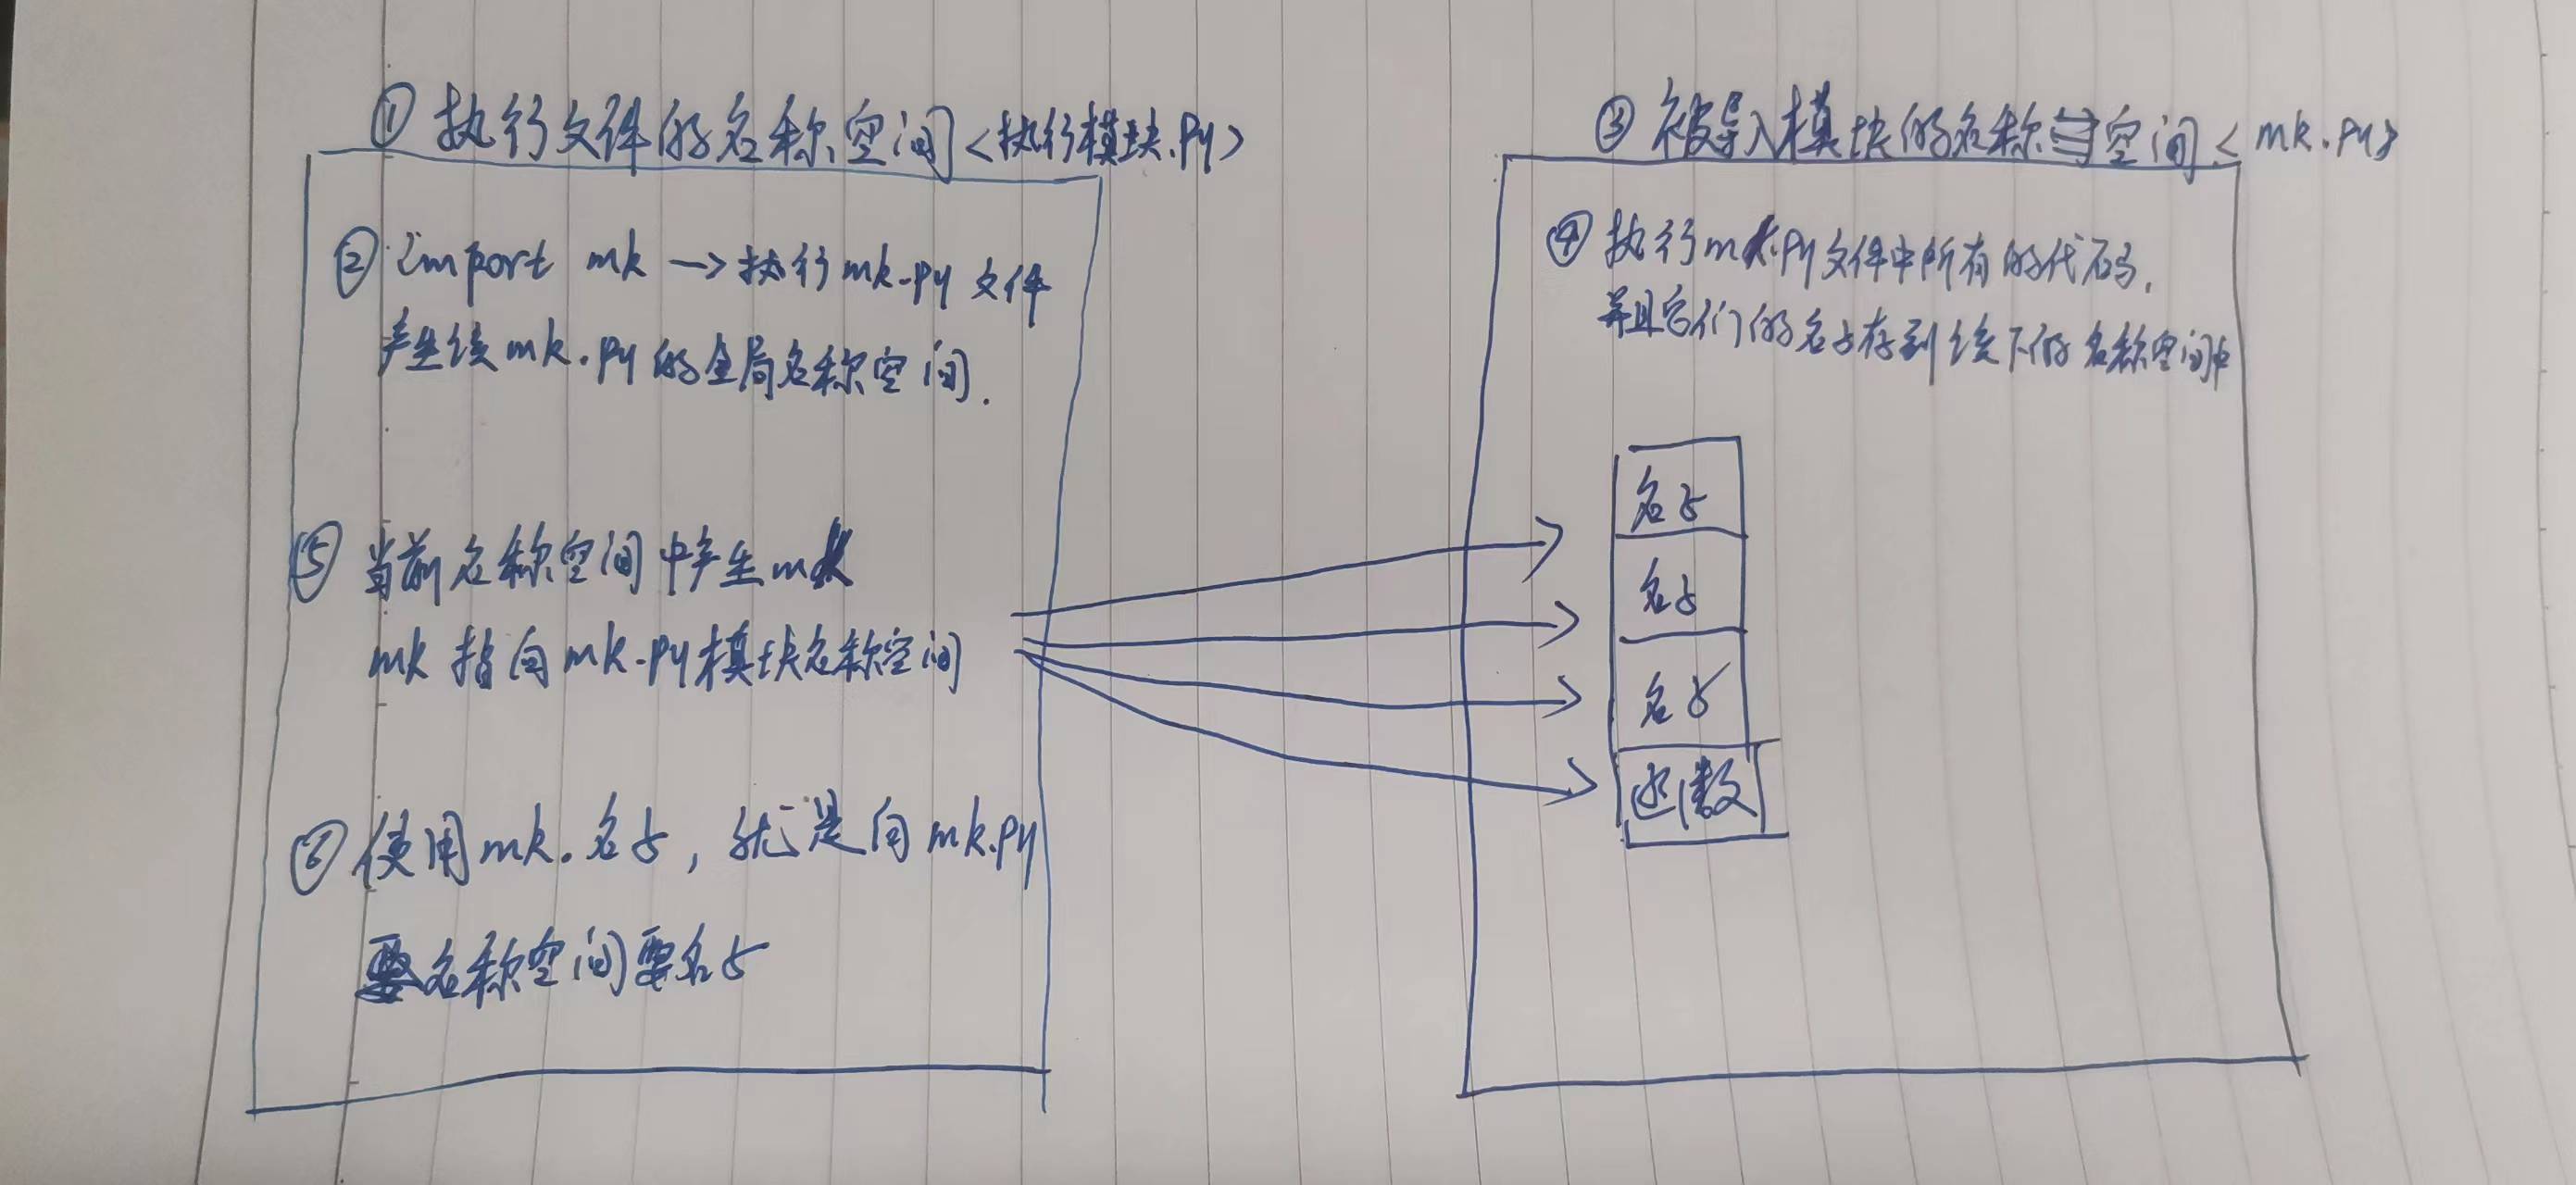 ① 执行文件的名称空间<执行模块.py>
② import mk → 执行mk.py 文件
产生该mk.py的全局名称空间.
⑤ 当前名称空间中产生mk
mk 指向mk.py模块名称空间
⑥ 使用mk.名字，就是向mk.py
名称空间要名字
③ 被导入模块的名称空间<mk.py>
④ 执行mk.py文件中所有的代码,
并且它们的名字存到该下的名称空间中
名字
名字
名字
函数